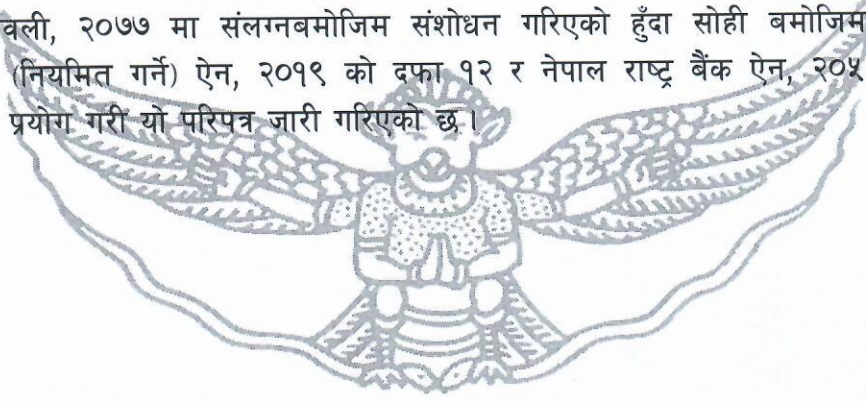 वली, २०७७ मा संलग्नबमोजिम संशोधन गरिएको हुँदा सोही बमोजिम
(नियमित गर्ने) ऐन, २०१९ को दफा १२ र नेपाल राष्ट्र बैंक ऐन, २०५
प्रयोग गरी यो परिपत्र जारी गरिएको छ।